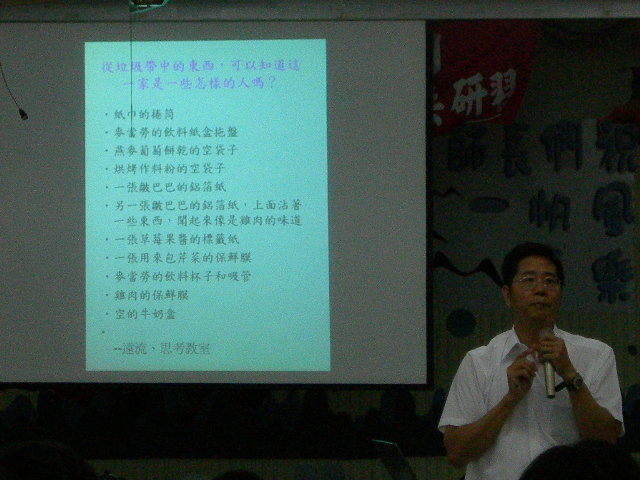 從垃圾帶中的東西，可以知道這
一家是一些怎樣的人嗎？
・紙巾的捲筒
・麥當勞的飲料紙盒拖盤
・燕麥葡萄餅乾的空袋子
・烘烤作料粉的空袋子
・一張皺巴巴的鋁箔紙
・另一張皺巴巴的鋁箔紙，上面沾著
一些東西，聞起來像是雞肉的味道
・一張草莓果醬的標籤紙
・一張用來包芹菜的保鮮膜
・麥當勞的飲料杯子和吸管
・雞肉的保鮮膜
・空的牛奶盒
・
--遠流、思考教室
研習
師長們 祝
一帆風